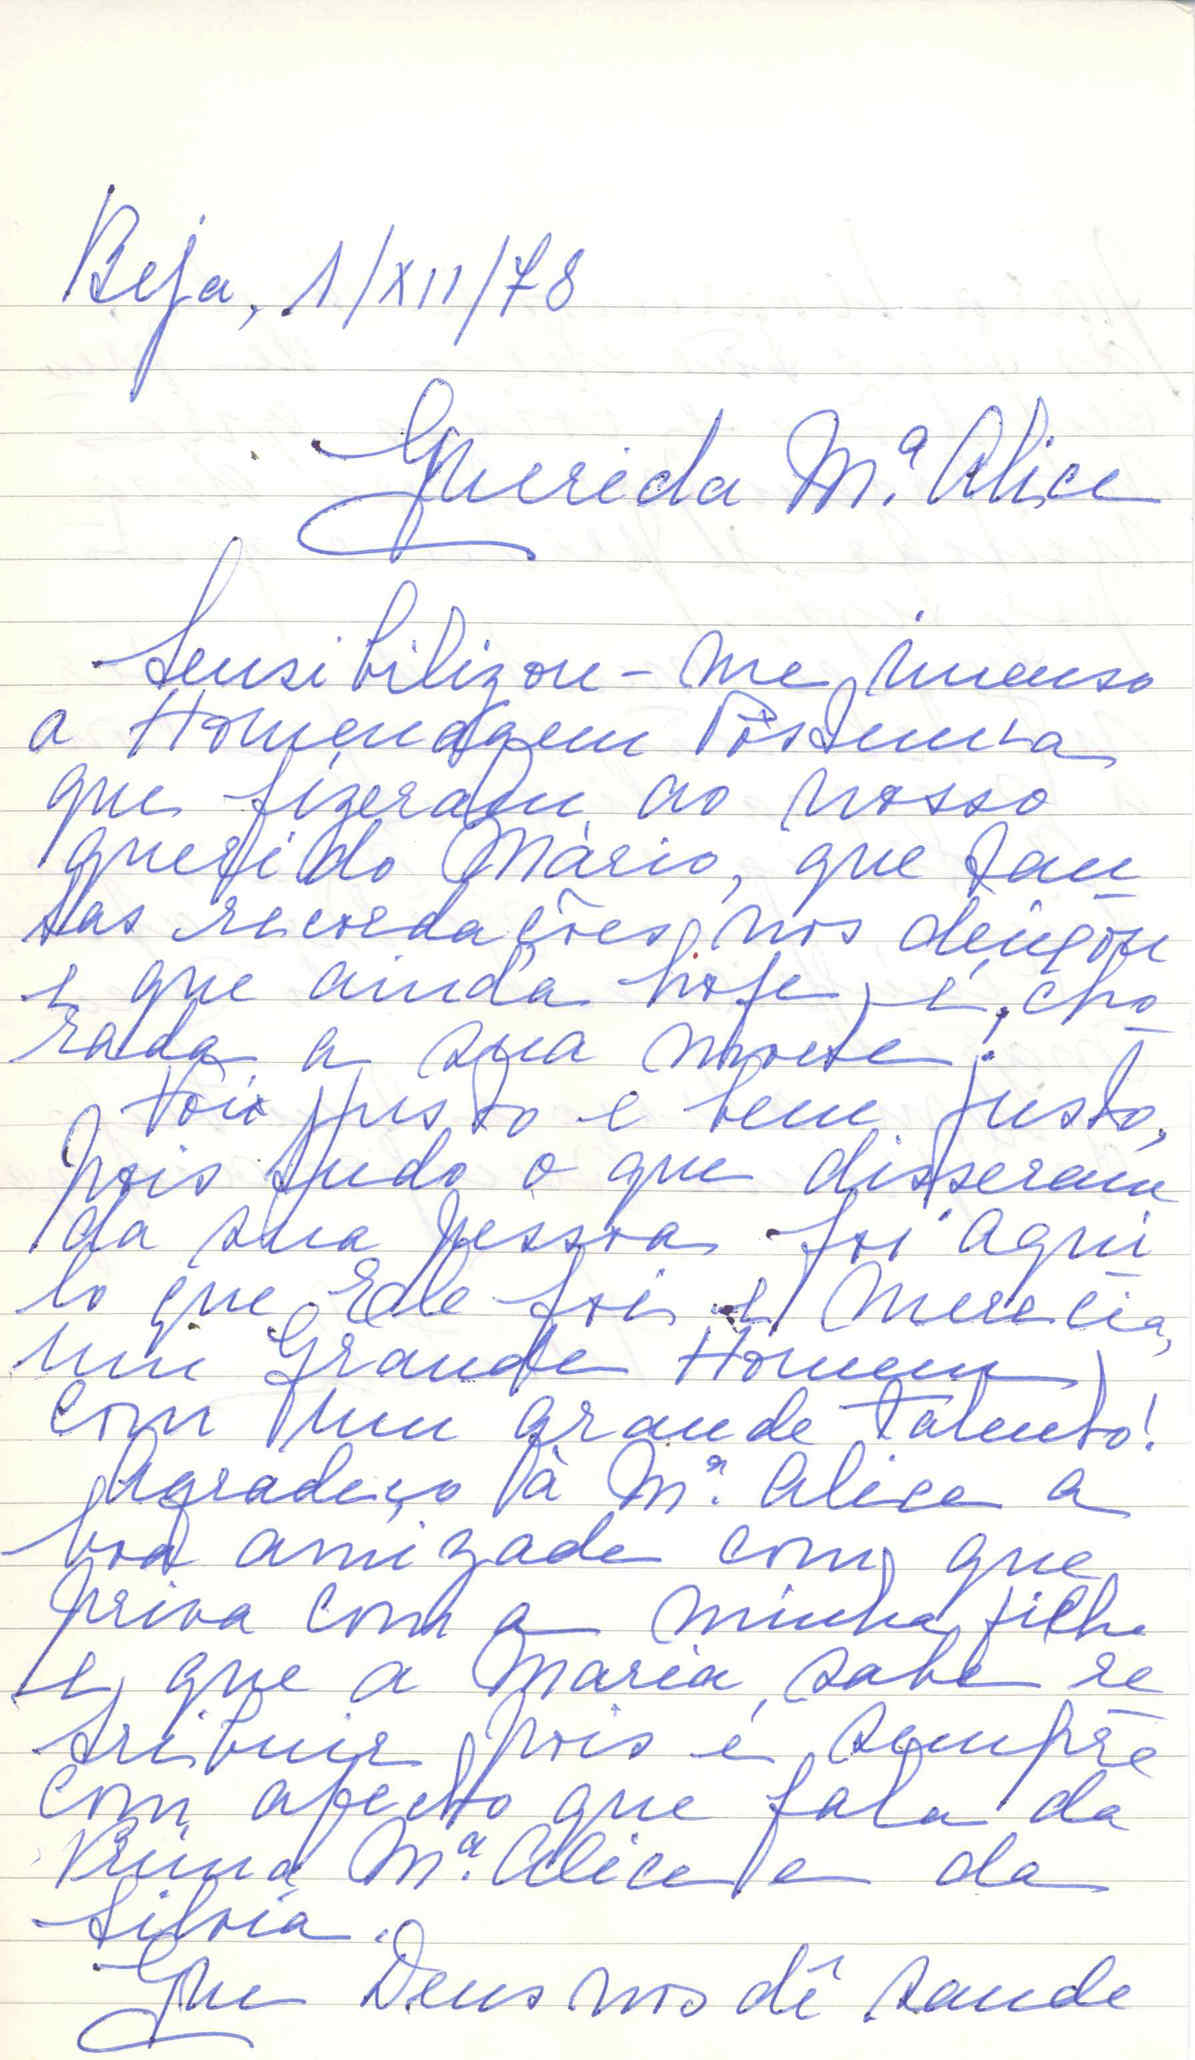 Beja, 1/XII/78
Querida Mª. Alice
Sensibilizou-me imenso
a Homenagem Póstuma
que fizeram ao nosso
querido Mário, que tan
tas recordações nos deixou
e que ainda hoje é cho
rada a sua morte!
Foi justo e bem justo,
pois tudo o que disseram
da sua pessoa foi aqui
lo que Ele foi e merecia,
um Grande Homem
com um grande talento!
Agradeço à Mª. Alice a
boa amizade com que
priva com a minha filha
e que a Maria sabe re
tribuir pois é sempre
com afecto que fala da
Prima Mª. Alice e da
Silvia.
Que Deus nos dê saude